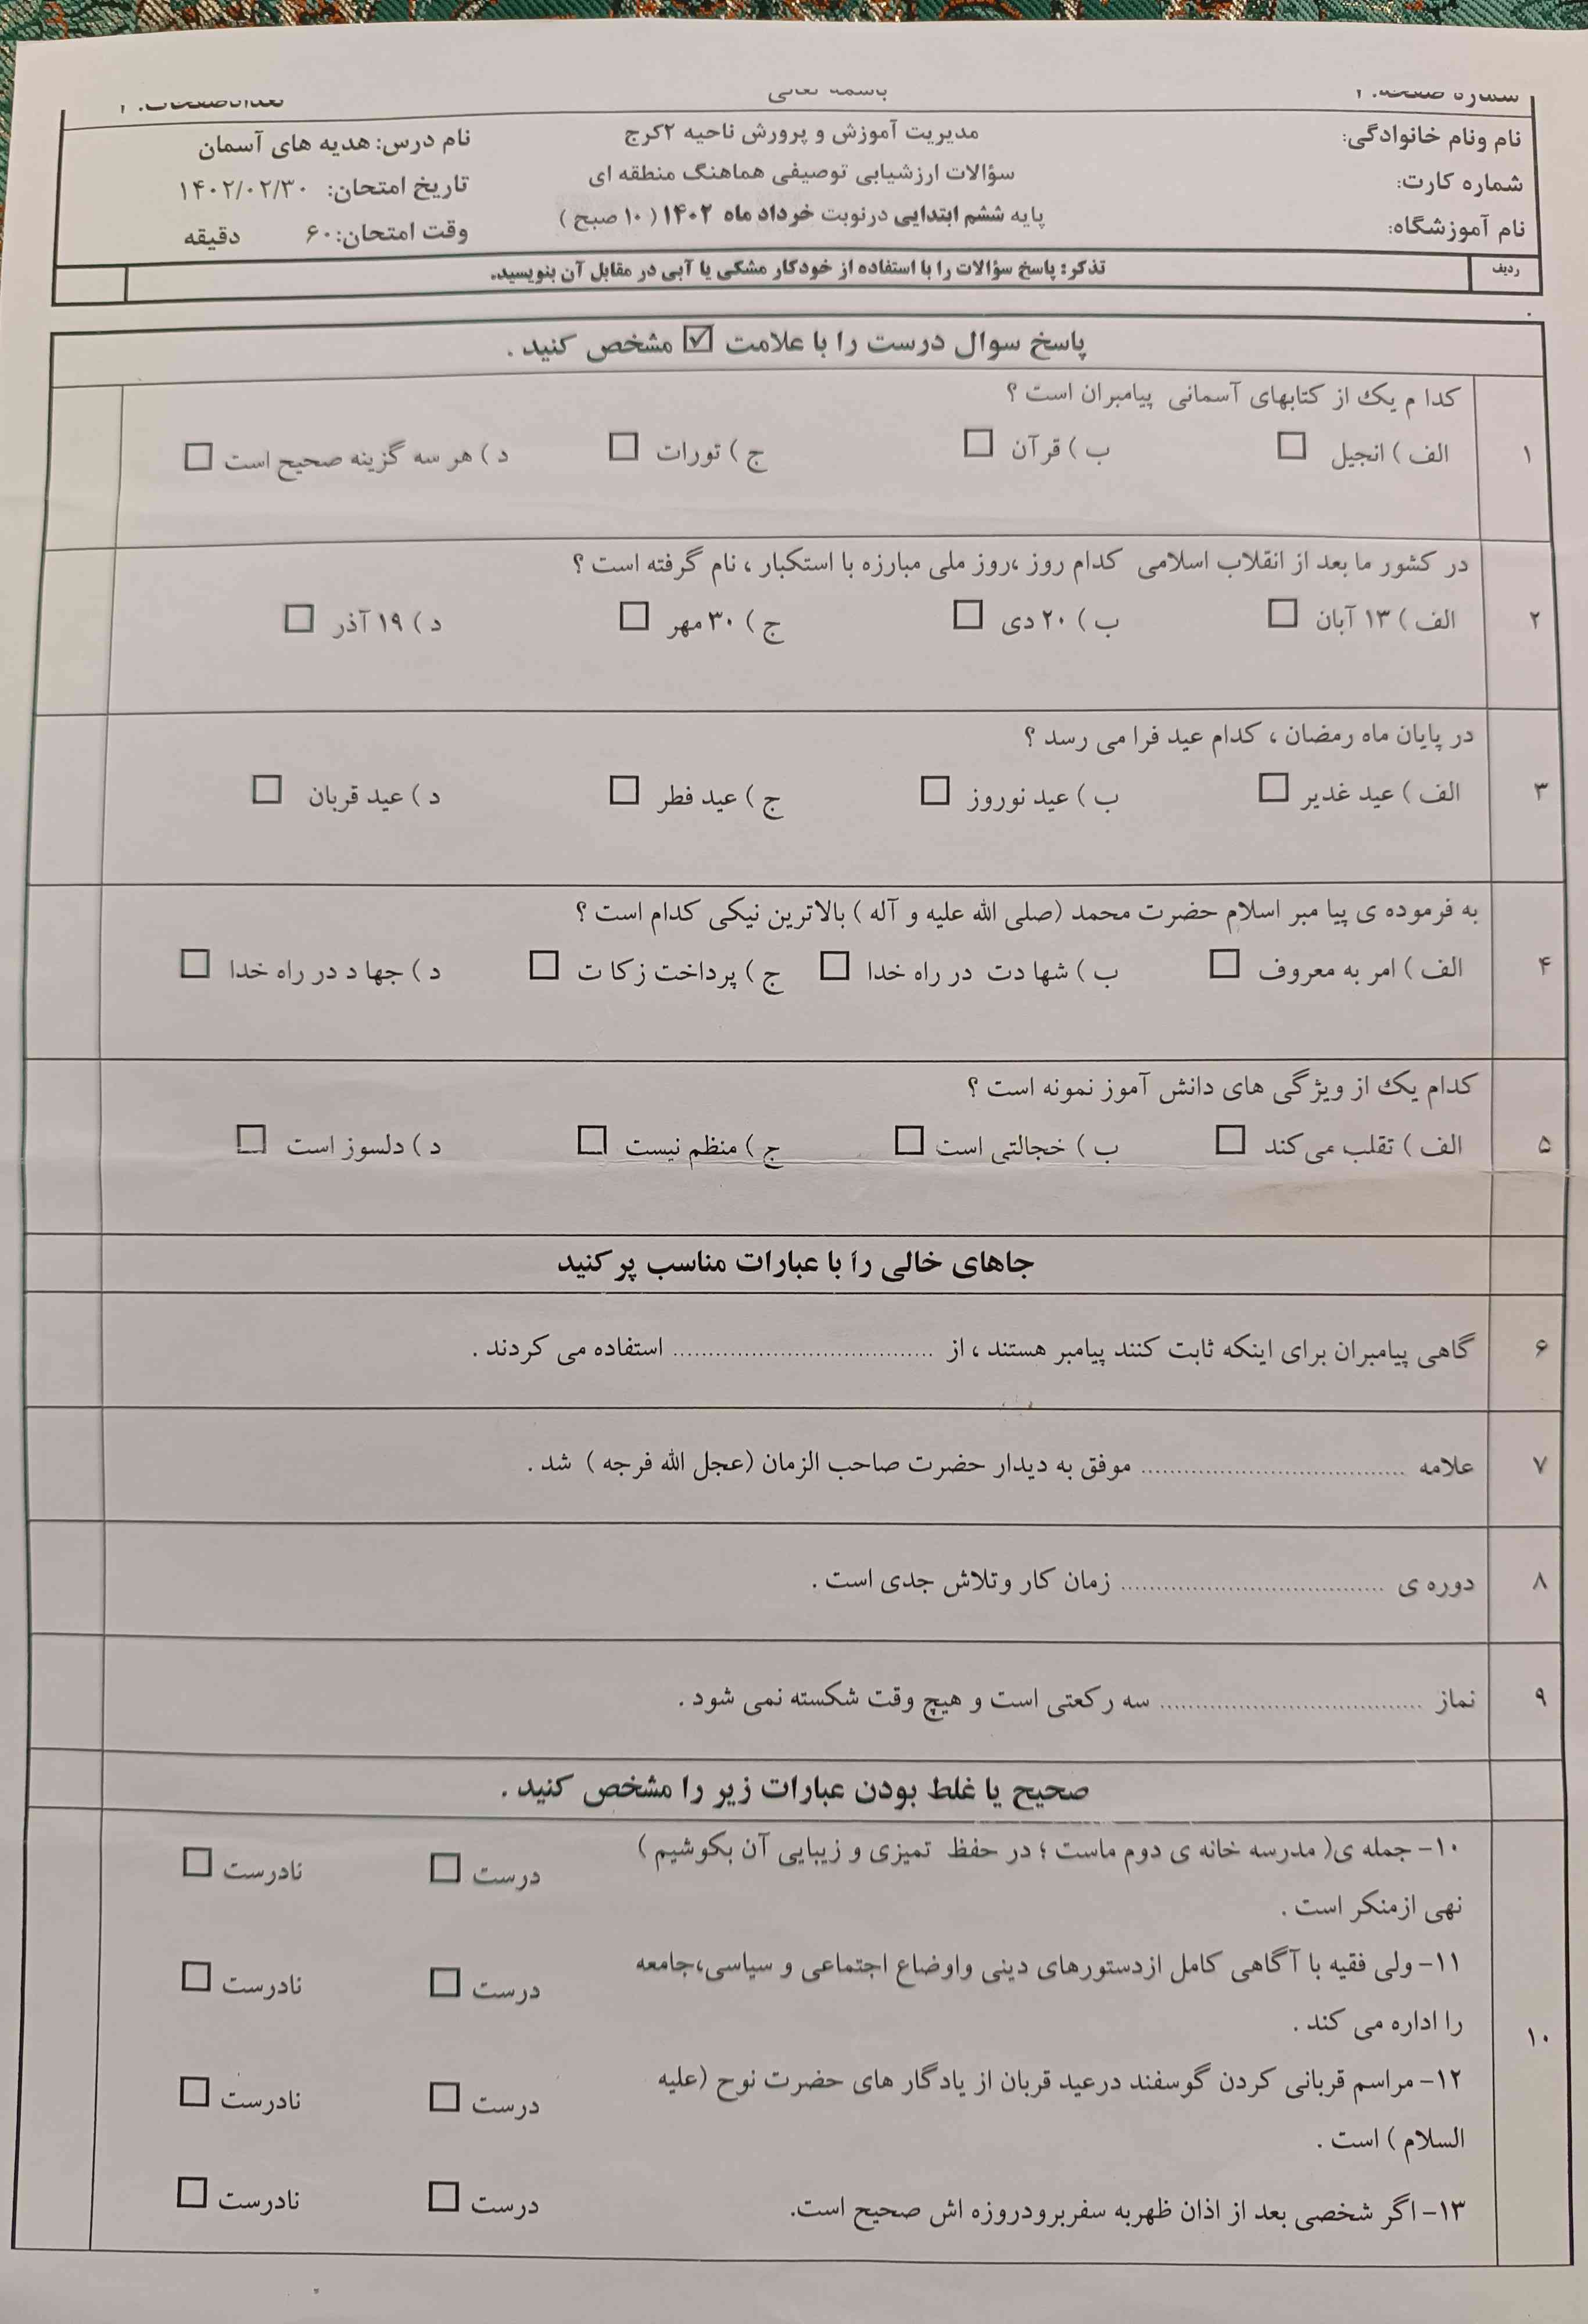 باسمه تعالی
نام ونام خانوادگی:
مدیریت آموزش و پرورش ناحیه ۲کرج
نام درس: هدیه های آسمان
شماره کارت:
سؤالات ارزشیابی توصیفی هماهنگ منطقه ای
تاریخ امتحان: ۱۴۰۲/۰۲/۳۰
نام آموزشگاه:
پایه ششم ابتدایی درنوبت خرداد ماه ۱۴۰۲ (۱۰ صبح )
وقت امتحان:۶۰ دقیقه
ردیف
تذکر: پاسخ سؤالات را با استفاده از خودکار مشکی یا آبی در مقابل آن بنویسید.
پاسخ سوال درست را با علامت ☑ مشخص کنید .
۱
کدا م یک از کتابهای آسمانی پیامبران است ؟
الف ) انجیل □ ب ) قرآن □ ج ) تورات □ د ) هر سه گزینه صحیح است □
۲
در کشور ما بعد از انقلاب اسلامی کدام روز ،روز ملی مبارزه با استکبار ، نام گرفته است ؟
الف ) ۱۳ آبان □ ب ) ۲۰ دی □ ج ) ۳۰ مهر □ د ) ۱۹ آذر □
۳
در پایان ماه رمضان ، کدام عید فرا می رسد ؟
الف ) عید غدیر □ ب ) عید نوروز □ ج ) عید فطر □ د ) عید قربان □
۴
به فرموده ی پیا مبر اسلام حضرت محمد (صلی الله علیه و آله ) بالاترین نیکی کدام است ؟
الف ) امر به معروف □ ب ) شها دت در راه خدا □ ج ) پرداخت زکا ت □ د ) جها د در راه خدا □
۵
کدام یک از ویژگی های دانش آموز نمونه است ؟
الف ) تقلب می کند □ ب ) خجالتی است □ ج ) منظم نیست □ د ) دلسوز است □
جاهای خالی را با عبارات مناسب پر کنید
۶
گاهی پیامبران برای اینکه ثابت کنند پیامبر هستند ، از ..................................... استفاده می کردند .
۷
علامه ..................................... موفق به دیدار حضرت صاحب الزمان (عجل الله فرجه ) شد .
۸
دوره ی ..................................... زمان کار وتلاش جدی است .
۹
نماز ..................................... سه رکعتی است و هیچ وقت شکسته نمی شود .
صحیح یا غلط بودن عبارات زیر را مشخص کنید .
۱۰
۱۰- جمله ی( مدرسه خانه ی دوم ماست ؛ در حفظ تمیزی و زیبایی آن بکوشیم ) درست □ نادرست □
نهی ازمنکر است .
۱۱- ولی فقیه با آگاهی کامل ازدستورهای دینی واوضاع اجتماعی و سیاسی،جامعه درست □ نادرست □
را اداره می کند .
۱۲- مراسم قربانی کردن گوسفند درعید قربان از یادگار های حضرت نوح (علیه درست □ نادرست □
السلام ) است .
۱۳- اگر شخصی بعد از اذان ظهربه سفربرودروزه اش صحیح است. درست □ نادرست □